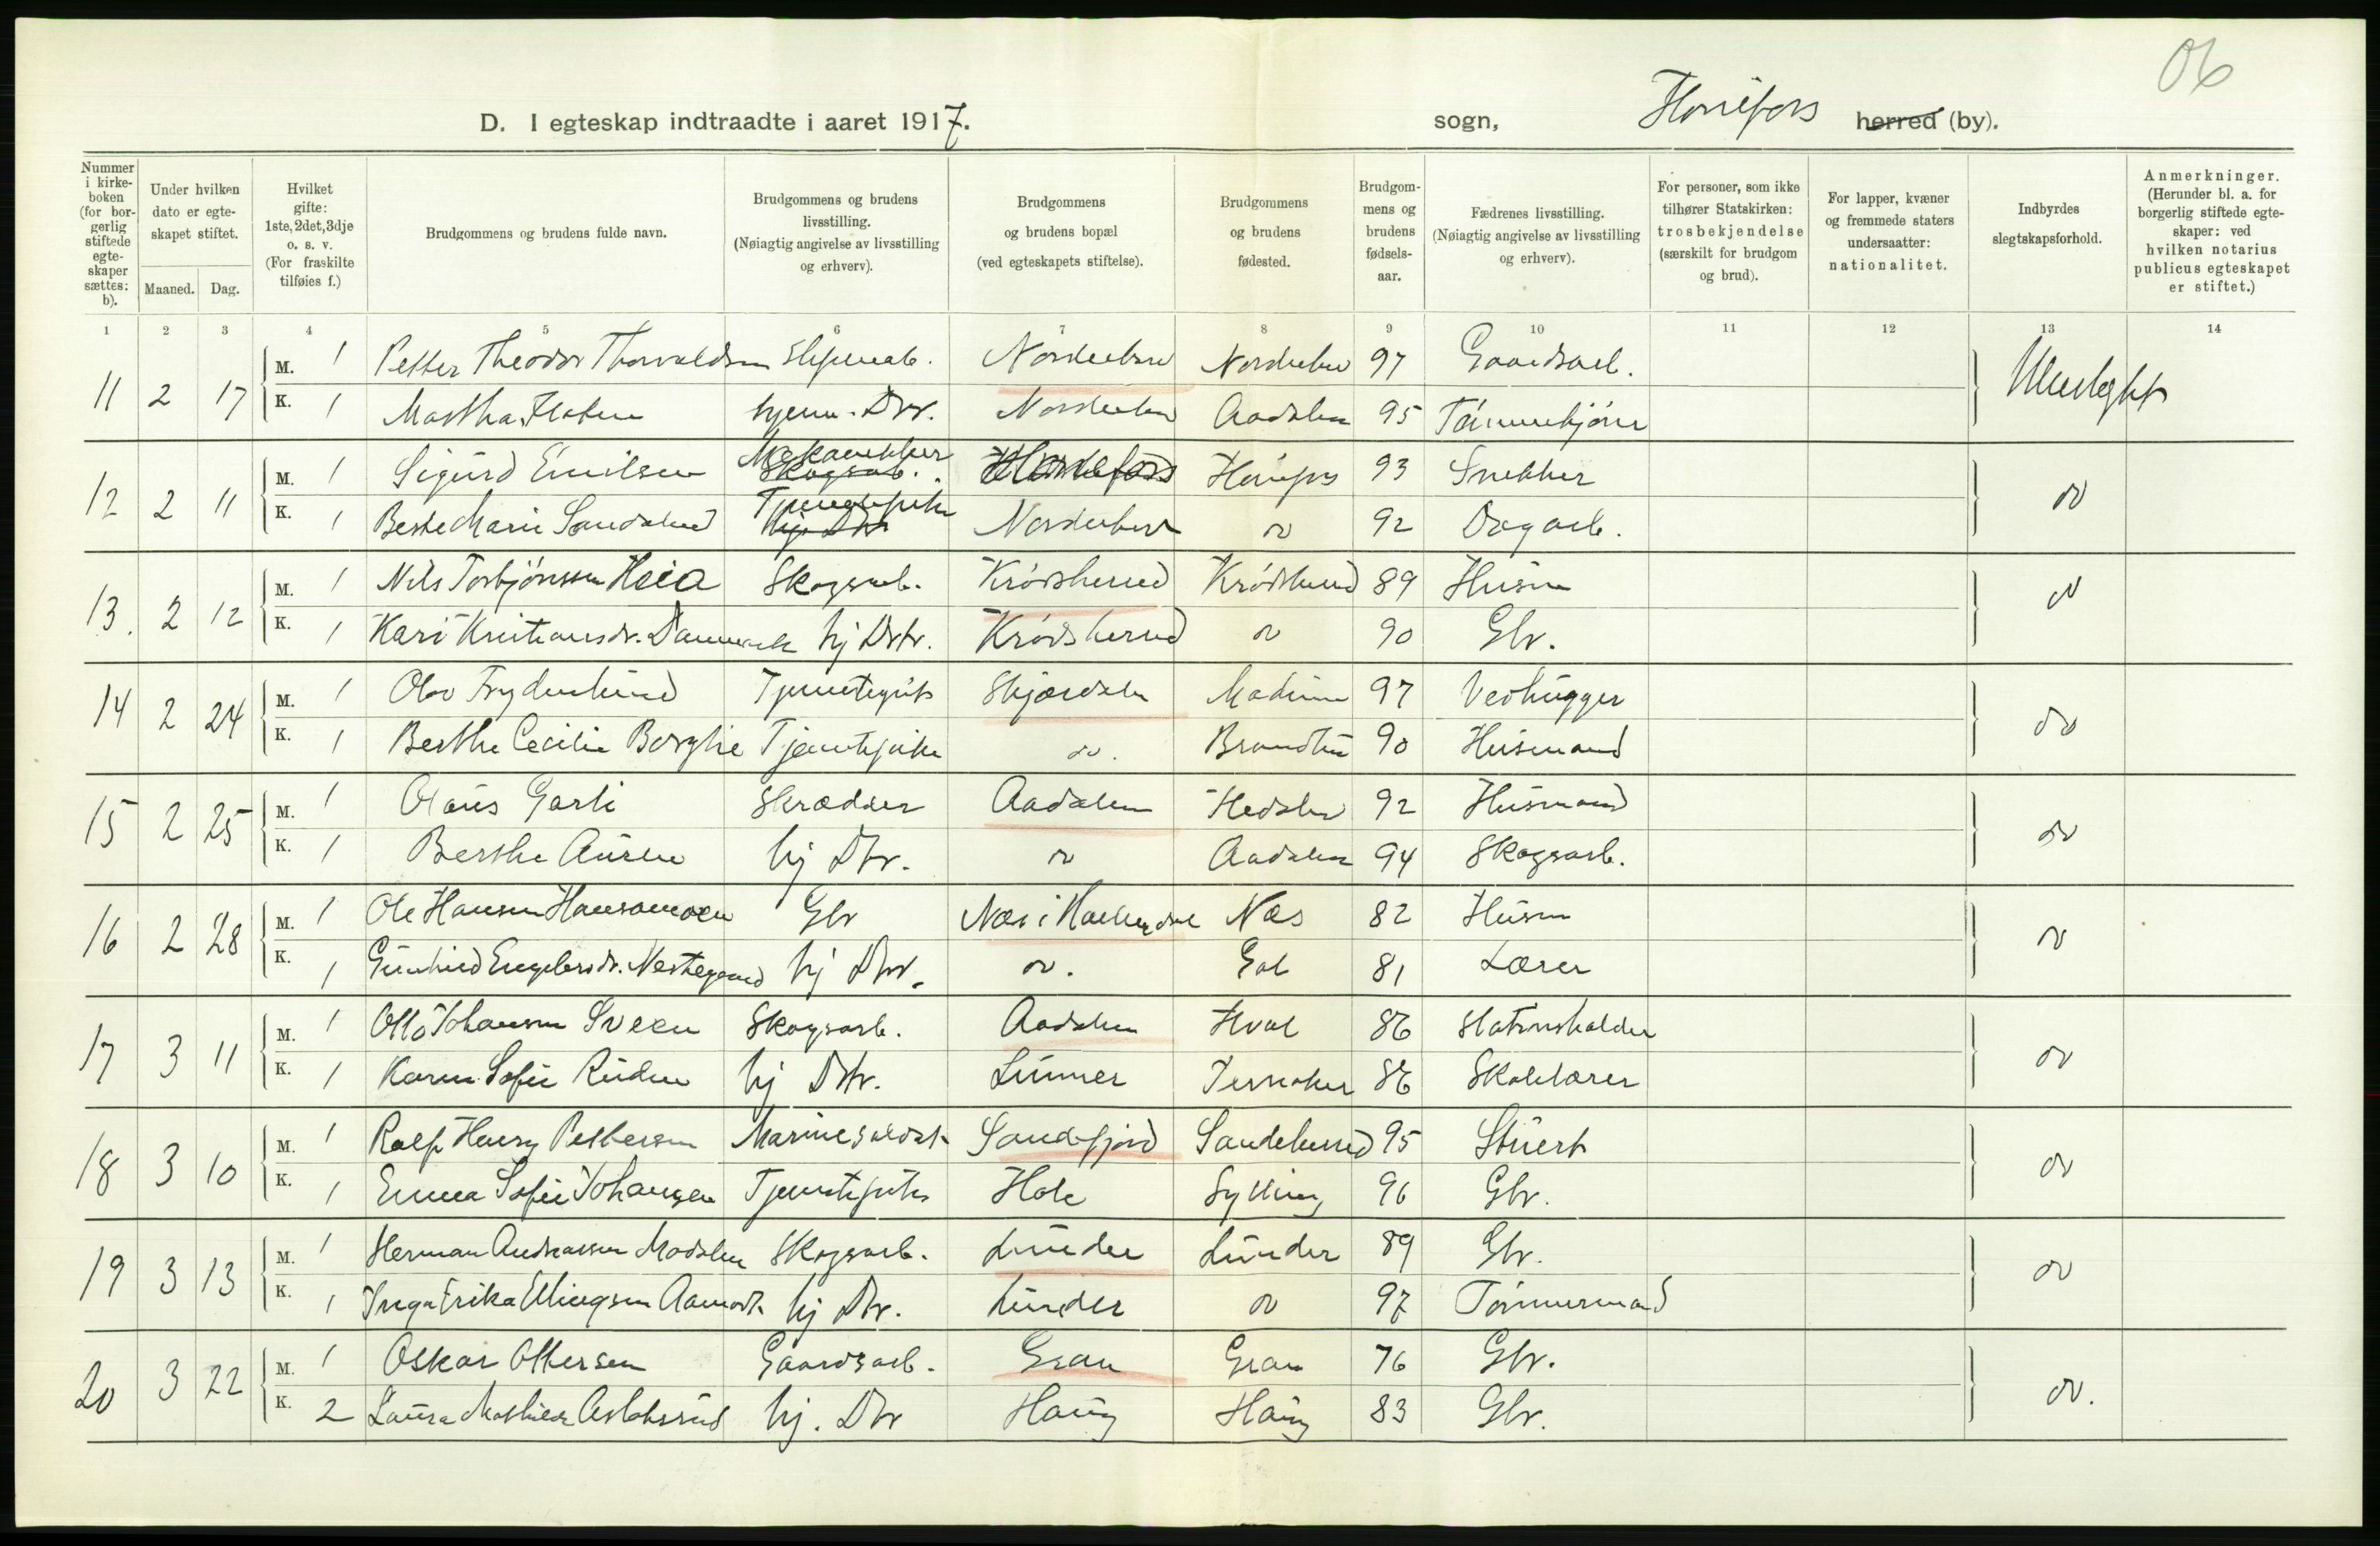 06
D. I egteskap indtraadte i aaret 1917.
sogn, Hønefos herred (by).
Nummer i kirkeboken (for borgerlig stiftede egteskaper sættes: b).
Under hvilken dato er egteskapet stiftet.
Maaned. Dag.
Hvilket gifte: 1ste, 2det, 3dje o. s. v. (For fraskilte tilføies f.)
Brudgommens og brudens fulde navn.
Brudgommens og brudens livsstilling. (Nøiagtig angivelse av livsstilling og erhverv).
Brudgommens og brudens bopæl (ved egteskapets stiftelse).
Brudgommens og brudens fødested.
Brudgommens og brudens fødselsaar.
Fædrenes livsstilling. (Nøiagtig angivelse av livsstilling og erhverv).
For personer, som ikke tilhører Statskirken: trosbekjendelse (særskilt for brudgom og brud).
For lapper, kvæner og fremmede staters undersaatter: nationalitet.
Indbyrdes slegtskapsforhold.
Anmerkninger. (Herunder bl. a. for borgerlig stiftede egteskaper: ved hvilken notarius publicus egteskapet er stiftet.)
1 2 3 4 5 6 7 8 9 10 11 12 13 14
11 2 17 M. 1 Petter Theodor Thorvaldsen Norderhov Norderhov 97 Gaardsarb. Ubeslegtet
K. 1 Martha Flaten hjemv. Dtr. Norderhov Aadalen 95
12 2 11 M. 1 Sigurd Emilsen Mekaniker Skogsarb. Hønefos Hønefos 93 Snekker do
K. 1 Berte Marie Tjenestepike hj. Dtr Norderhov do 92 Dagarb.
13. 2 12 M. 1 Nils Torbjørnssen Heia Skogsarb. Krødsherred Krødsherred 89 Husm do
K. 1 Kari hj Dtr. Krødsherred do 90 Gbr.
14 2 24 M. 1 Olav Frydenlund Tjenestegut Skjærdalen Modum 97 Vedhugger do
K. 1 Berthe Cecilie Borglie Tjenestepike do. Brandbu 90 Husmand
15 2 25 M. 1 Olaus Garli Skrædder Aadalen Hedalen 92 Husmand do
K. 1 Berthe Aurén hj Dtr. do Aadalen 94 Skogsarb.
16 2 28 M. 1 Ole Hansen Hansemoen Gbr Nes i Hallingdal Nes 82 Husm do
K. 1 Gunhild Engebrsdr. Nestegaard hj Dtr. do. Gol 81 Lærer
17 3 11 M. 1 Otto Johansen Sveen Skogsarb. Aadalen Hval 86 do
K. 1 Karen Sofie Ruden hj Dtr. Lunner Jevnaker 86 Skolelærer
18 3 10 M. 1 Ralf Henry Pettersen Marinesoldat Sandefjord Sandeherred 95 Stuert do
K. 1 Emma Sofie Johansen Tjenestepike Hole Sylling 96 Gbr.
19 3 13 M. 1 Herman Andreassen Modalen Skogsarb. Lunder Lunder 89 Gbr. do
K. 1 Inga Erika Ellingsen Aamodt hj Dtr. Lunder do 97 Tømmermand
20 3 22 M. 1 Oskar Ottersen Gaardsarb. Gran Gran 76 Gbr. do.
K. 2 Laura Mathilde hj. Dtr Haug Haug 83 Gbr.